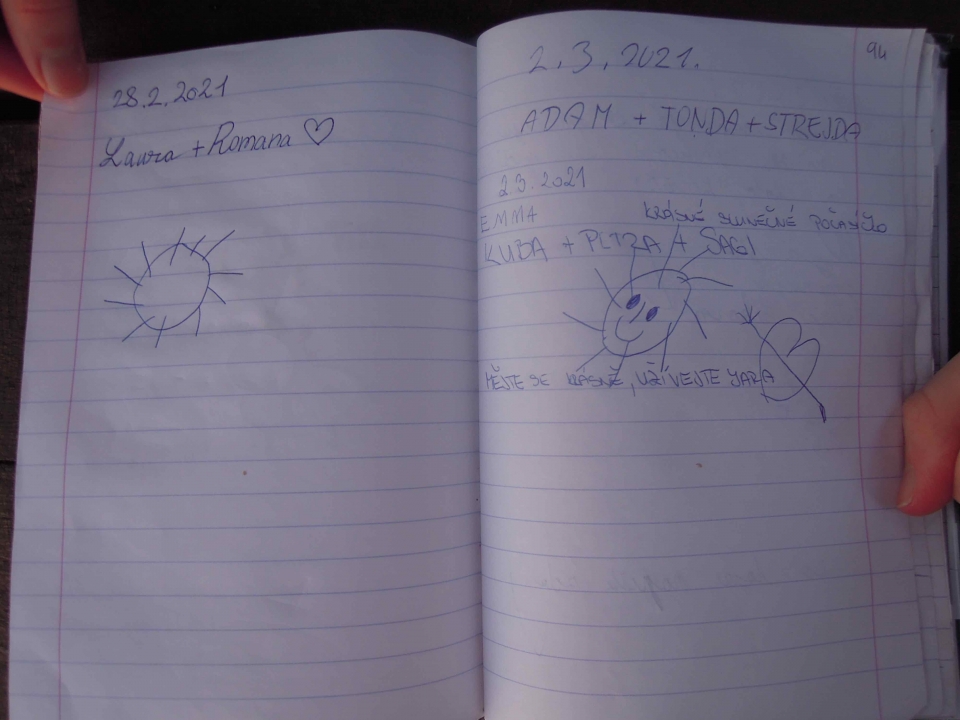 28.2.2021
Laura + Romana ♡
94
2.3.2021.
ADAM + TONDA + STREJDA
2.3.2021
EMMA
KRÁSNÉ SLUNEČNÉ POČASÍČKO
KUBA + PETRA + SAGI
MĚJTE SE KRÁSNĚ, UŽÍVEJTE JARA